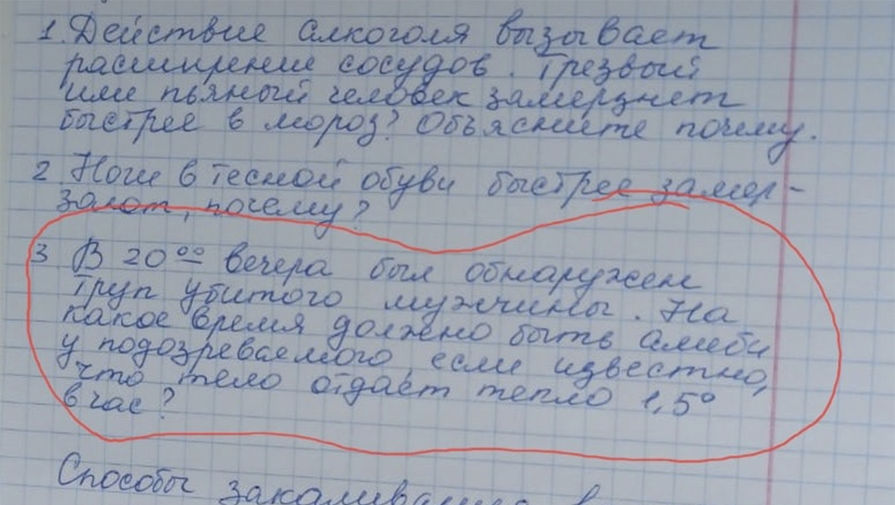 1. Действие алкоголя вызывает
расширение сосудов. Трезвый
или пьяный человек замерзнет
быстрее в мороз? Объясните почему.
2 Ноги в тесной обуви быстрее замер-
зают, почему?
3 В 20⁰⁰ вечера был обнаружен
труп убитого мужчины. На
какое время должно быть алиби
у подозреваемого, если известно,
что тело отдаёт тепло 1,5°
в час?
Способы закаливания